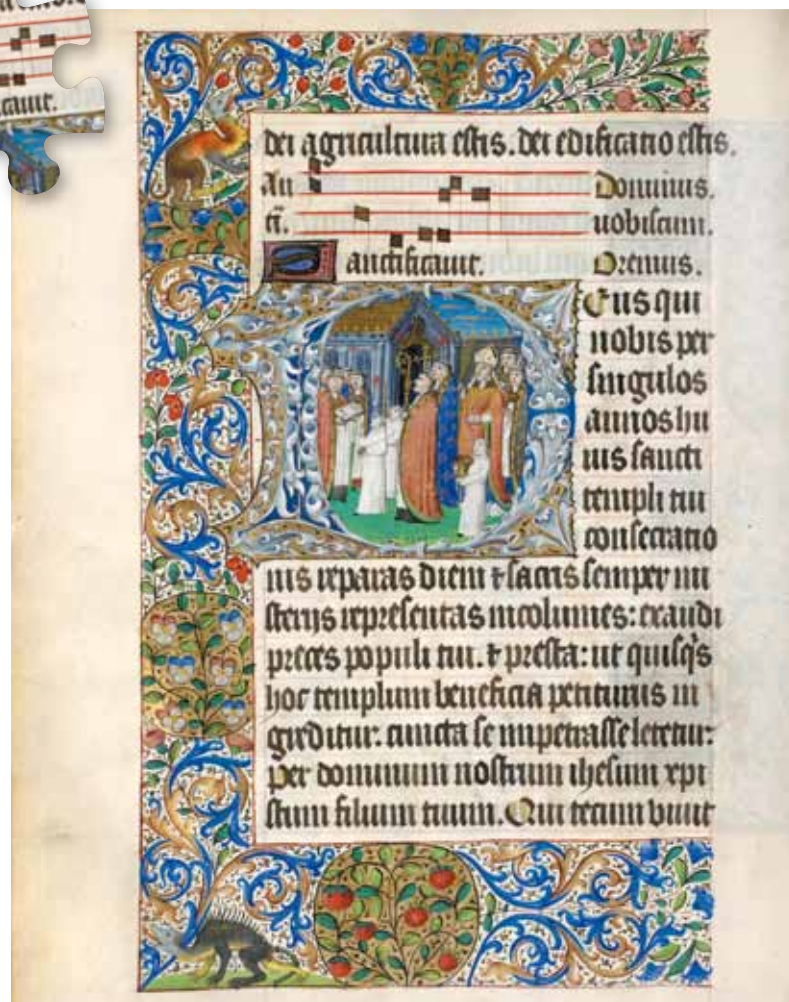 cauit.
dei agricultura estis. dei edificatio estis.
An Dominus.
ti. uobiscum.
Sanctificauit. Oremus.
Deus qui
nobis per
singulos
annos hu
ius sancti
templi tui
consecratio
nis reparas diem & sacris semper mi
sterijs representas incolumes: exaudi
preces populi tui. & presta: ut quisq's
hoc templum beneficia petiturus in
greditur. cuncta se impetrasse letetur:
Per dominum nostrum ihesum xpi
stum filium tuum. Qui tecum viuit